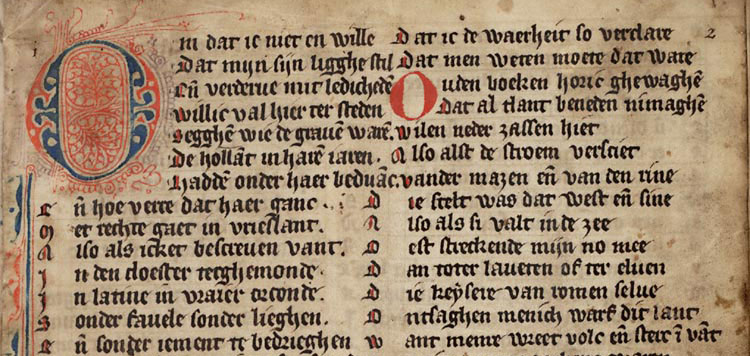 1
Om dat ic niet en wille
Dat mijn sijn ligghe stil
En̄ verderue mit ledichede
Willic v al hier ter steden
Segghē wie de grauen warē.
De hollāt in harē iaren.
Haddē onder haer beduāc.
En̄ hoe verre dat haer ganc.
Met rechte gaet in vrieslant.
Also als icket bescreuen vant.
In den cloester tecghemonde.
In latine in vraier orconde.
Sonder fauele sonder lieghen.
En̄ sonder iement te bedrieghen
2
Dat ic de waerheit so verclare
Dat men weten moete dat ware
Ouden boeken horic ghewaghē
Dat al tlant beneden nimaghē
Wilen neder zassen hiet
Also alst de stroem versciet
Vander mazen en̄ van den rine
Die scelt was dat west en̄ sine
Also als si valt in de zee
Oest streckende mijn no mee
Dan toter laueren of ter eluen
Die keysere van romen selue
Ontsaghen menich warf dit lant
Want meine wreet volc en̄ sterc ī vāt